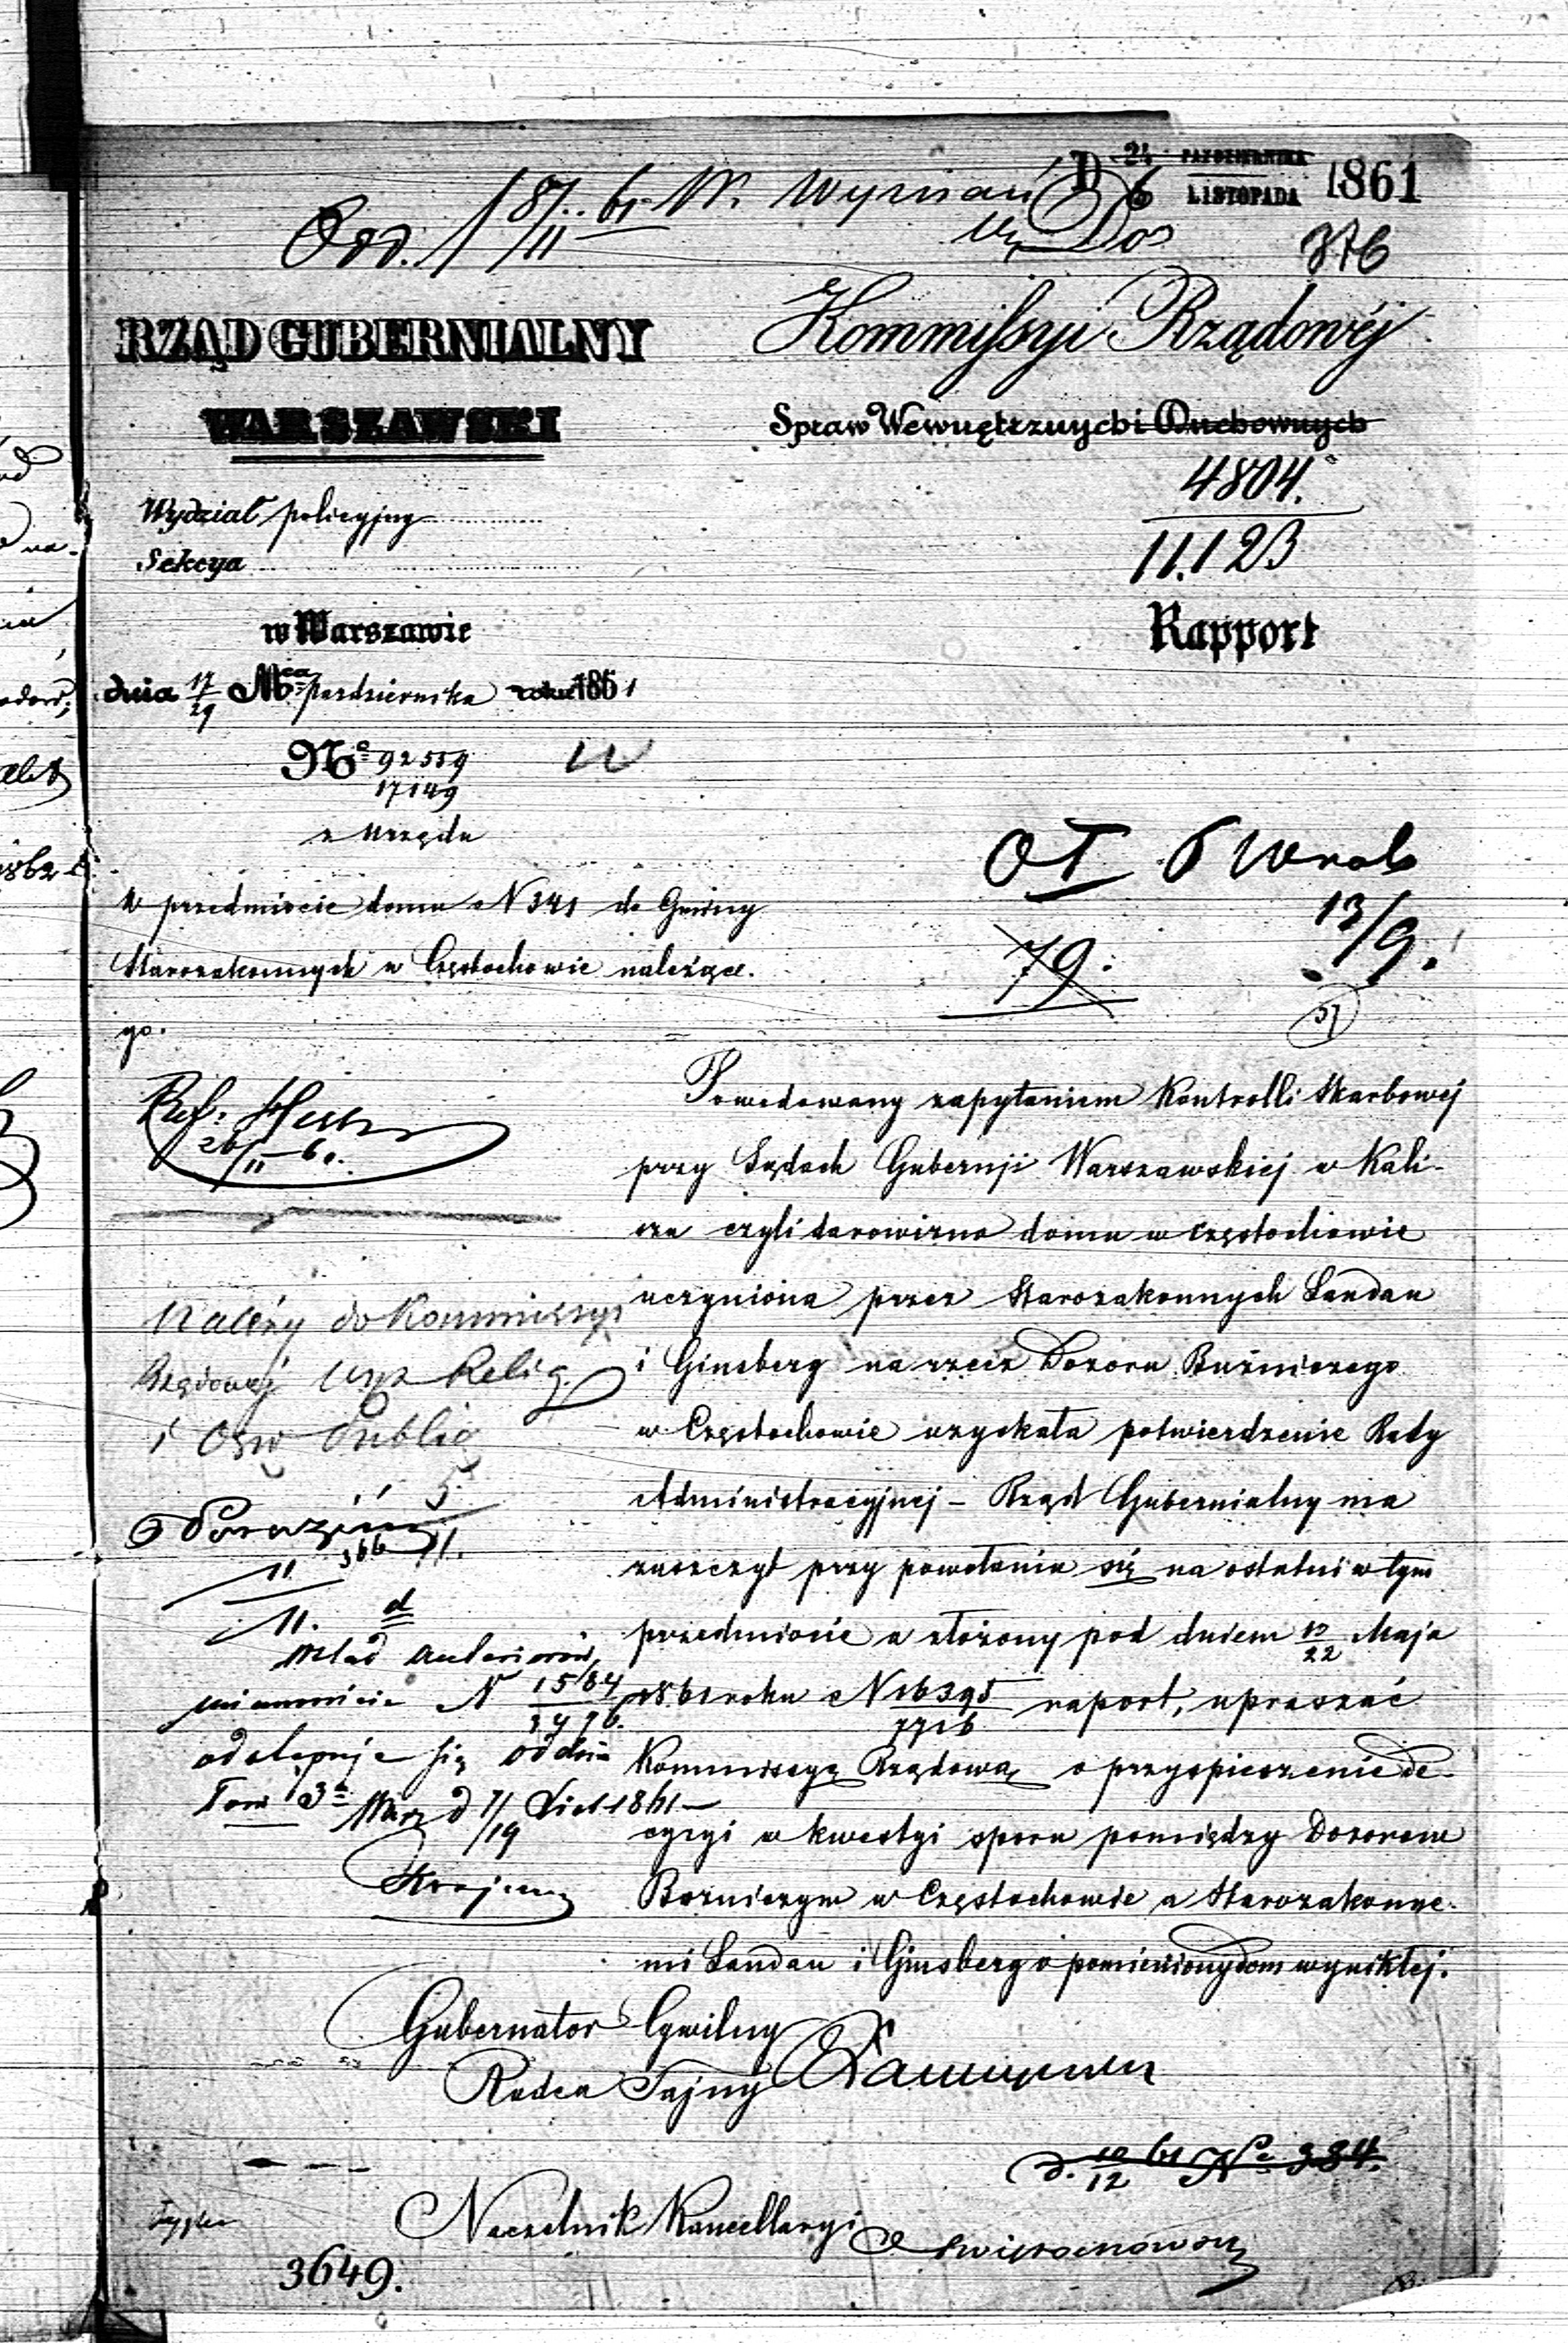 D 24 PAZDZIERNIKA
6 LISTOPADA 1861
Odd. 8/11 61 W. Wyznań
Do
376
RZĄD GUBERNIALNY
WARSZAWSKI
Kommissyi Rządowéj
Spraw Wewnętrznych i Duchownych
4804.
11.123
Wydział policyjny
Sekcya
w Warszawie
Rapport
dnia 17/29 Mca pazdziernika roku 1861
No 92559
17149
z Urzędu
w przedmiocie domu N 341 do Gminy
Starozakonnych w Częstochowie należące-
go.
79.
13/9.
57
Ref.
26/11 61.
Powodowany zapytaniem Kontrolli Skarbowej
przy Sądach Gubernji Warszawskiej w Kali-
szu czyli darowizna domu w Częstochowie
uczyniona przez Starozakonnych Landau
i Ginsberg na rzecz Dozoru Bużniczego
w Częstochowie uzyskała potwierdzenie Rady
Administracyjnej – Rząd Gubernialny ma
zaszczyt przy powołaniu się na ostatni w tym
przedmiocie a złożony pod dniem 10/22 Maja
1861 roku N 16395/7716 raport, upraszać
Kommissyą Rządową o przyspieszenie de-
cyzyi w kwestyi sporu pomiędzy Dozorem
Bożniczym w Częstochowie a Starozakonne-
mi Landau i Ginsberg o pomieniony dom wynikłej.
Należy do Kommissyi
Rządowej Wyz Relig.
i Ośw Public
5/11.
366
11.
11. d
wimnoście N 1584/3476.
odstępuje się
Tom 3
d 7/19 List 1861 –
Gubernator Cywilny
Radca Tajny
d. 10/12 61 No 384.
Naczelnik Kancellaryi
3649.